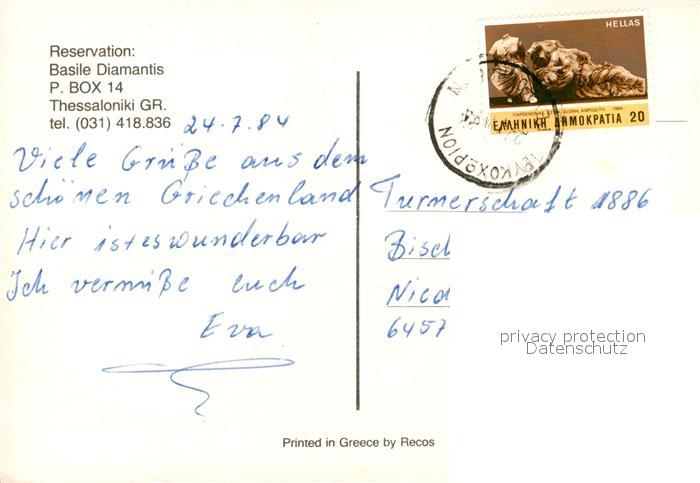 Reservation:
Basile Diamantis
P. BOX 14
Thessaloniki GR.
tel. (031) 418.836
24.7.84
Viele Grüße aus dem
schönen Griechenland
Hier ist es wunderbar
Ich vermiße euch
Eva
HELLAS
ΕΛΛΗΝΙΚΗ ΔΗΜΟΚΡΑΤΙΑ 20
Turnerschaft 1886
Bisch
Nied
6457
privacy protection
Datenschutz
Printed in Greece by Recos